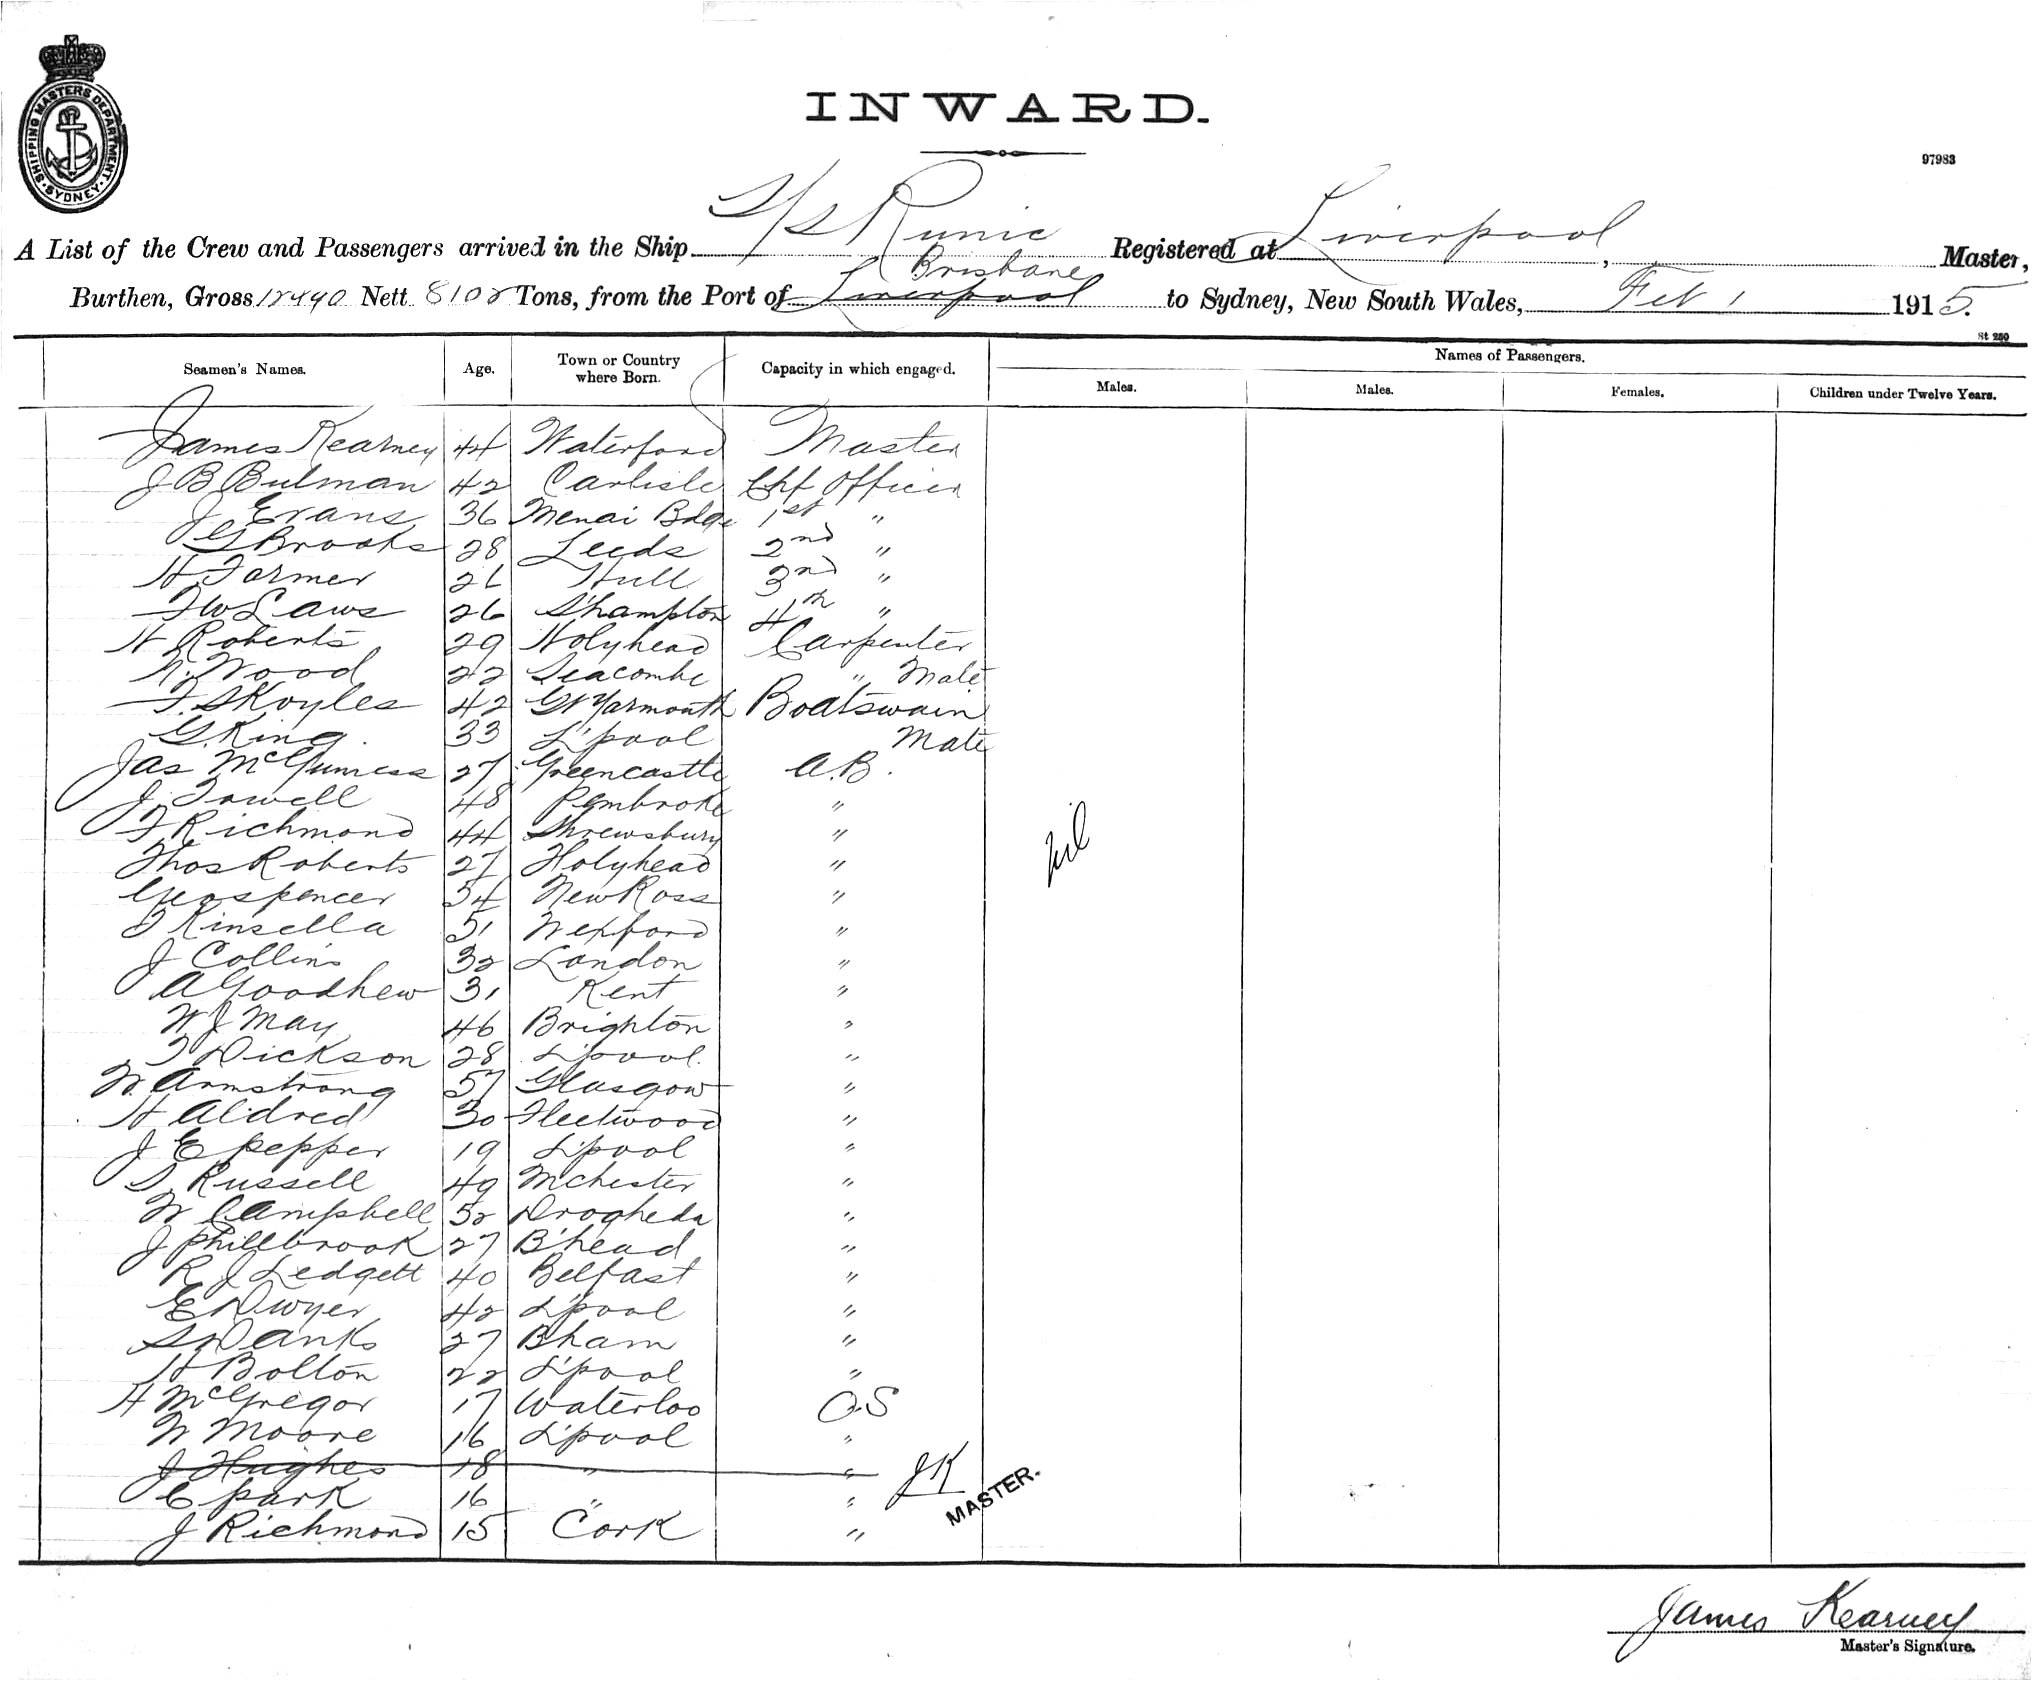 SHIPPING MASTERS DEPARTMENT
SYDNEY
INWARD.
97983
A List of the Crew and Passengers arrived in the Ship S/S Runic Registered at Liverpool, Master,
Brisbane
Burthen, Gross 12490 Nett 8102 Tons, from the Port of Liverpool to Sydney, New South Wales, Feb 1 1915.
St 250
Seamen's Names. Age. Town or Country where Born. Capacity in which engaged. Names of Passengers.
Males. Males. Females. Children under Twelve Years.
James Kearney 44 Waterford Master
J B Bulman 42 Carlisle Chf Officer
J Evans 36 Menai Bdge 1st "
G Brooks 28 Leeds 2nd "
H Farmer 26 Hull 3rd "
F W Laws 26 S'hampton 4th "
H Roberts 29 Holyhead Carpenter
Wood 22 Seacombe " Mate
F. Skoyles 42 Gt Yarmouth Boatswain
G. King. 33 L'pool Mate
Jas McGuiness 27 Greencastle A.B.
J. Towell 48 Pembroke "
F Richmond 44 Shrewsbury "
Thos Roberts 27 Holyhead "
Geo Spencer 54 New Ross "
Kinsella 51 Wexford "
J Collins 32 London "
A Goodhew 31 Kent "
W J May 46 Brighton "
Dickson 28 L'pool. "
W. Armstrong 57 Glasgow "
H Aldred 30 Fleetwood "
J E Pepper 19 L'pool "
Russell 49 Mchester "
W Campbell 52 Drogheda "
J Phillbrook 27 B'head "
R J Ledgett 40 Belfast "
E Dwyer 42 L'pool "
S Danks 27 Bham "
H Bolton 22 L'pool "
A McGregor 17 Waterloo O.S
W Moore 16 L'pool "
J Hughes 18 " " JK
C Park 16 " " MASTER.
J Richmond 15 Cork "
Nil
James Kearney
Master's Signature.